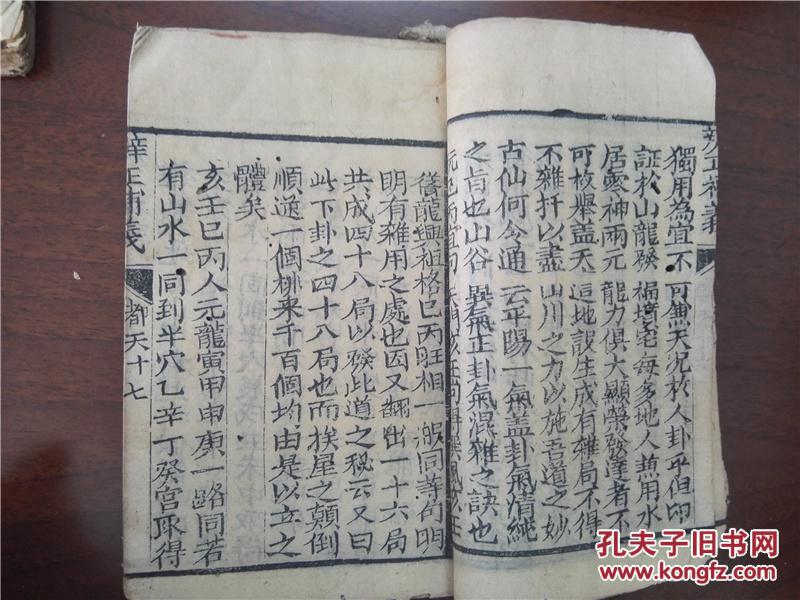 獨用為宜不可兼天况於人卦乎但印
証於山龍發福墳宅每多地人兼用水
居零神兩元龍力俱大顯榮發達者不
可枚舉蓋天這地設生成有雜局不得
不雜扦以盡山川之力以施吾道之妙
古仙何今通云平陽一氣蓋卦氣清純
之旨也山谷異氣正卦氣混雜之訣也
脊龍興祖格巳丙旺相一般同等句明
明有雜用之處也因又翻出一十六局
共成四十八局以發此道之秘云又曰
此下卦之四十八局也而挨星之顛倒
順逆一個排来千百個均由是以立之
體矣
亥壬巳丙人元龍寅甲申庚一路同若
有山水一同到半穴乙辛丁癸宮取得
辛正補義
都天十七
孔夫子旧书网
www.kongfz.com